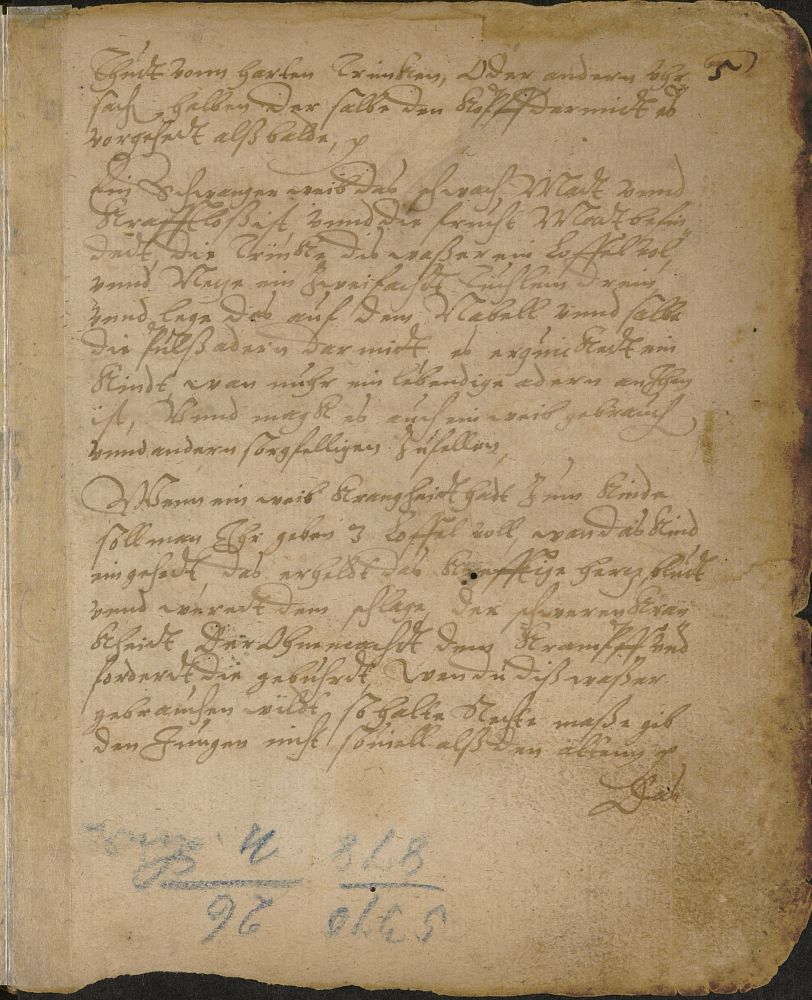 5
Thudt vonn harten Trincken, Oder andern Vhr
sach halben der salbe den Kopff darmidt es
vorgehedt alß balde,
Ein Schwanger weib das schwach Madt vnnd
Krafftloß ist, vnnd die frucht Madt befin
dedt, die Trincke dis waßer ein Loffel vol,
vnnd Neze ein Zweifachs Tuchlein drein,
vnnd lege das auf den Nabell vnnd salbe
die Pulß adern dar midt, es erquickedt ein
Kindt wan nuhr ein lebendige adern an Ihm
ist, Vnnd magk es auch ein weib gebrauch
vnnd andern sorgfelligen Zufellen,
Wenn ein weib Krangheidt hadt Zum Kinde
soll man Ihr geben 3 Loffel voll, wan das Kind
ein gehedt, das erheldt das Krefftige herz, bludt
vnnd weredt dem schlage, der schweren Kran
ckheidt Der Ohnmachdt dem Krampff vnd
forderdt die gebuhrdt, Wen du diß waßer
gebrauchen wildt, so halte Rechte maße gib
den Jungen nicht souiell alß den altenn
Das